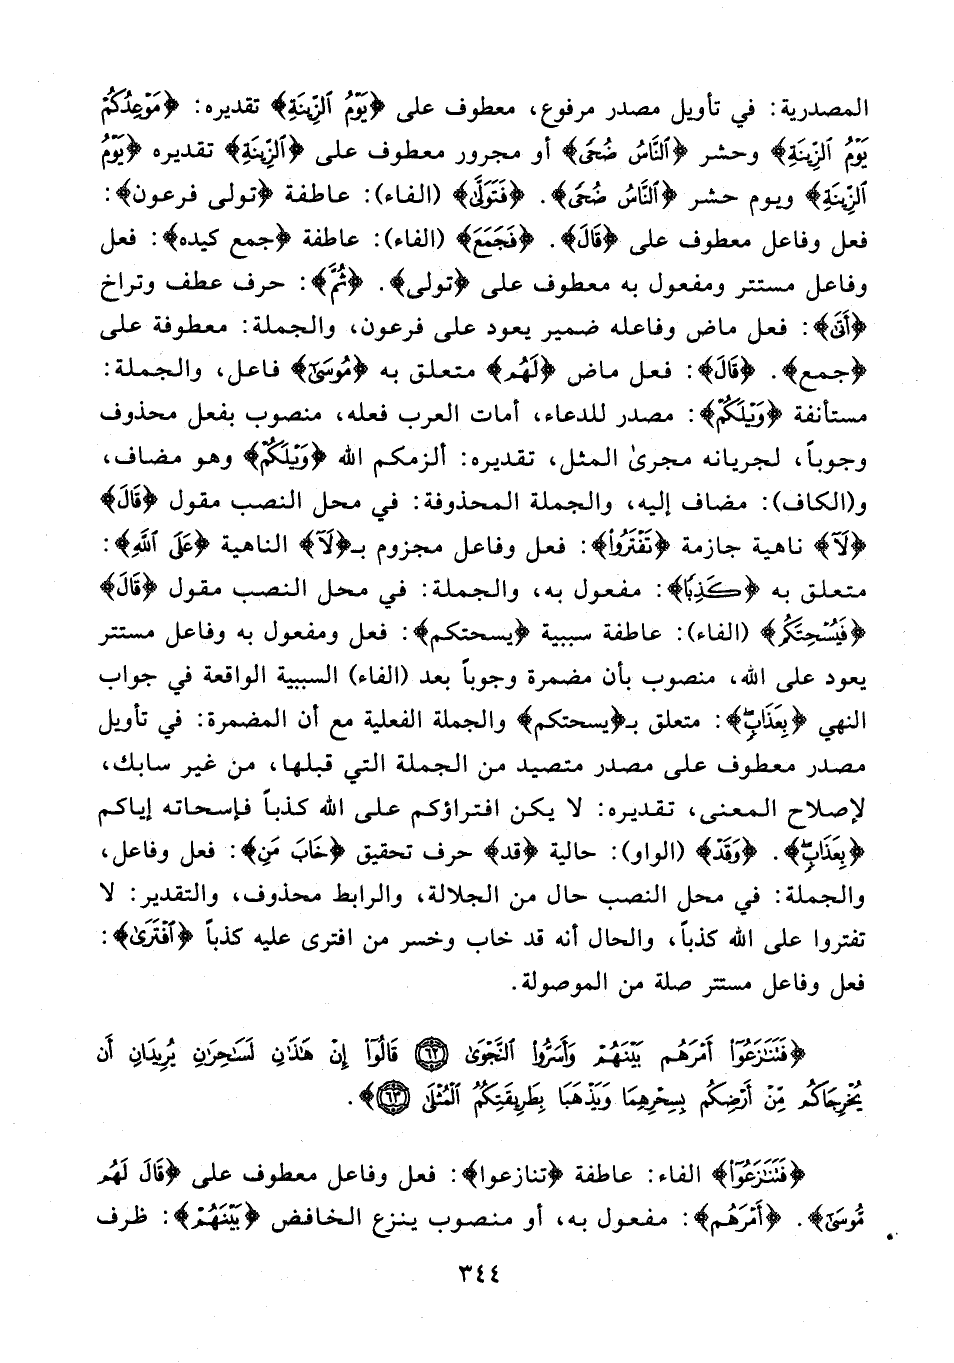 المصدرية: في تأويل مصدر مرفوع، معطوف على ﴿يَوْمُ ٱلزِّينَةِ﴾ تقديره: ﴿مَوْعِدُكُمْ
يَوْمُ ٱلزِّينَةِ﴾ وحشر ﴿ٱلنَّاسُ ضُحًى﴾ أو مجرور معطوف على ﴿ٱلزِّينَةِ﴾ تقديره ﴿يَوْمُ
ٱلزِّينَةِ﴾ ويوم حشر ﴿ٱلنَّاسُ ضُحًى﴾. ﴿فَتَوَلَّىٰ﴾ (الفاء): عاطفة ﴿تولى فرعون﴾:
فعل وفاعل معطوف على ﴿قَالَ﴾. ﴿فَجَمَعَ﴾ (الفاء): عاطفة ﴿جمع كيده﴾: فعل
وفاعل مستتر ومفعول به معطوف على ﴿تولى﴾. ﴿ثُمَّ﴾: حرف عطف وتراخ
﴿أَتَىٰ﴾: فعل ماض وفاعله ضمير يعود على فرعون، والجملة: معطوفة على
﴿جمع﴾. ﴿قَالَ﴾: فعل ماض ﴿لَهُم﴾ متعلق به ﴿مُّوسَىٰ﴾ فاعل، والجملة:
مستأنفة ﴿وَيْلَكُمْ﴾: مصدر للدعاء، أمات العرب فعله، منصوب بفعل محذوف
وجوباً، لجريانه مجرىٰ المثل، تقديره: ألزمكم الله ﴿وَيْلَكُمْ﴾ وهو مضاف،
و(الكاف): مضاف إليه، والجملة المحذوفة: في محل النصب مقول ﴿قَالَ﴾
﴿لَا﴾ ناهية جازمة ﴿تَفْتَرُوا۟﴾: فعل وفاعل مجزوم بـ﴿لَا﴾ الناهية ﴿عَلَى ٱللَّهِ﴾:
متعلق به ﴿كَذِبًا﴾: مفعول به، والجملة: في محل النصب مقول ﴿قَالَ﴾
﴿فَيُسْحِتَكُم﴾ (الفاء): عاطفة سببية ﴿يسحتكم﴾: فعل ومفعول به وفاعل مستتر
يعود على الله، منصوب بأن مضمرة وجوباً بعد (الفاء) السببية الواقعة في جواب
النهي ﴿بِعَذَابٍ﴾: متعلق بـ﴿يسحتكم﴾ والجملة الفعلية مع أن المضمرة: في تأويل
مصدر معطوف على مصدر متصيد من الجملة التي قبلها، من غير سابك،
لإصلاح المعنى، تقديره: لا يكن افتراؤكم على الله كذباً فإسحاته إياكم
﴿بِعَذَابٍ﴾. ﴿وَقَدْ﴾ (الواو): حالية ﴿قد﴾ حرف تحقيق ﴿خَابَ مَنِ﴾: فعل وفاعل،
والجملة: في محل النصب حال من الجلالة، والرابط محذوف، والتقدير: لا
تفتروا على الله كذباً، والحال أنه قد خاب وخسر من افترى عليه كذباً ﴿ٱفْتَرَىٰ﴾:
فعل وفاعل مستتر صلة من الموصولة.
﴿فَتَنَٰزَعُوٓا۟ أَمْرَهُم بَيْنَهُمْ وَأَسَرُّوا۟ ٱلنَّجْوَىٰ ٦٢ قَالُوٓا۟ إِنْ هَٰذَٰنِ لَسَٰحِرَٰنِ يُرِيدَانِ أَن
يُخْرِجَاكُم مِّنْ أَرْضِكُم بِسِحْرِهِمَا وَيَذْهَبَا بِطَرِيقَتِكُمُ ٱلْمُثْلَىٰ ٦٣﴾.
﴿فَتَنَٰزَعُوٓا۟﴾ الفاء: عاطفة ﴿تنازعوا﴾: فعل وفاعل معطوف على ﴿قَالَ لَهُم
مُّوسَىٰ﴾. ﴿أَمْرَهُم﴾: مفعول به، أو منصوب ينزع الخافض ﴿بَيْنَهُمْ﴾: ظرف
٣٤٤